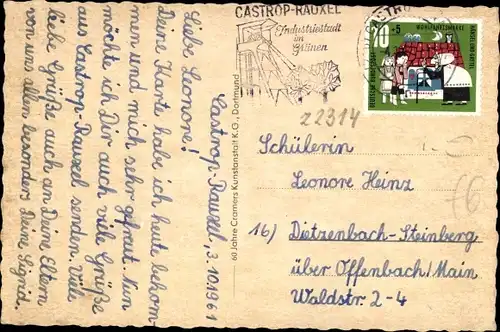 CASTROP-RAUXEL
Industriestadt
im
Grünen
10+5
WOHLFAHRTSMARKE
HÄNSEL UND GRETEL
DEUTSCHE BUNDESPOST
Castrop-Rauxel, 3.10.1961
Liebe Leonore!
Deine Karte habe ich heute bekom
men und mich sehr gefreut. Nun
möchte ich Dir auch viele Grüße
aus Castrop-Rauxel senden. Viele
liebe Grüße auch an Deine Eltern
von uns allen besonders Deine Sigrid.
60 Jahre Cramers Kunstanstalt K.G., Dortmund
22314
Schülerin
Leonore Heinz
16) Dietzenbach-Steinberg
über Offenbach/Main
Waldstr. 2-4